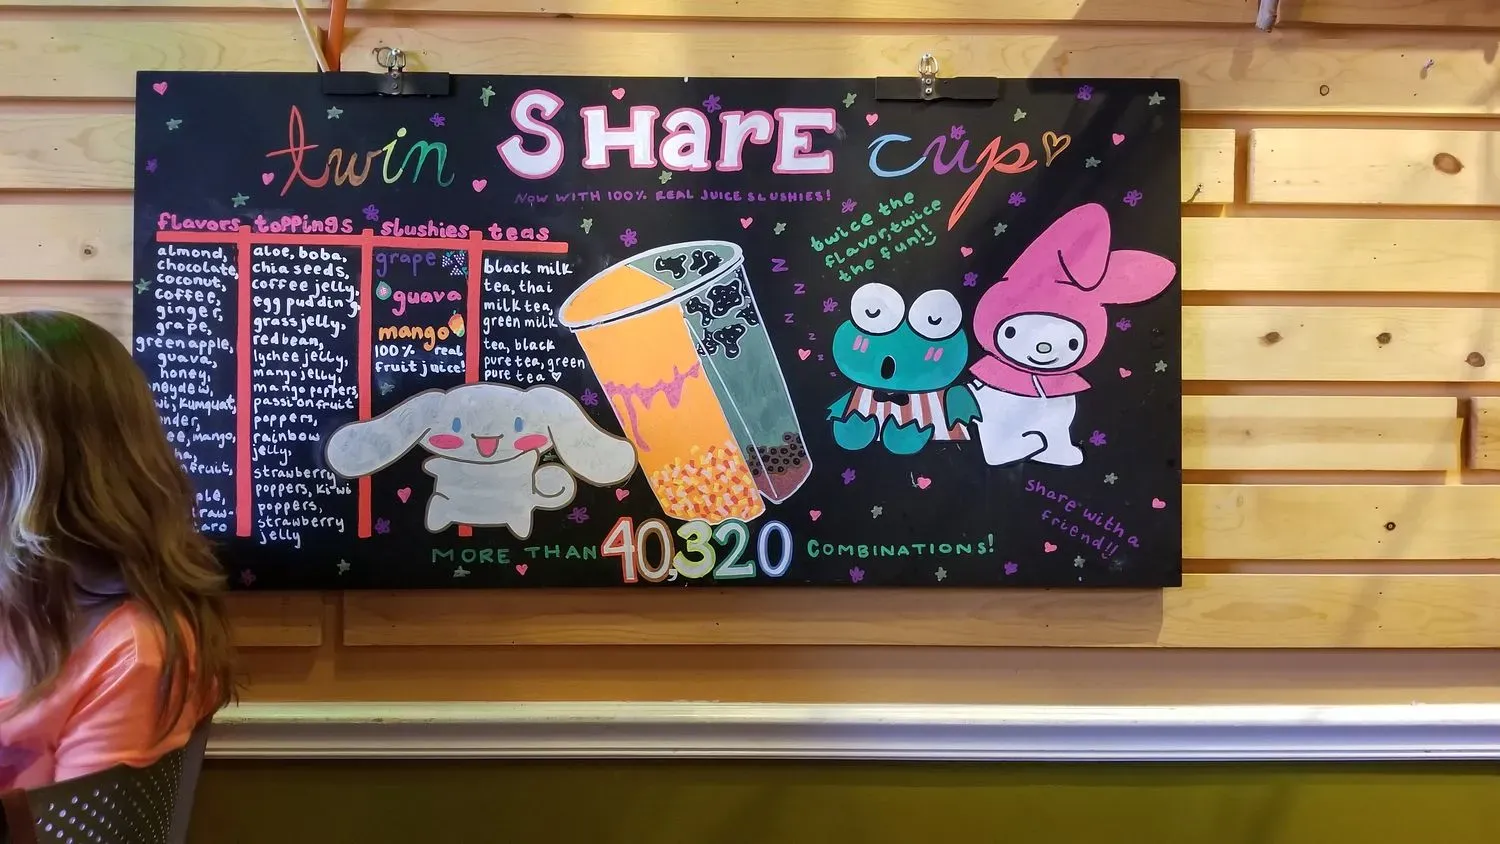 twin SHarE cup
NOW WITH 100% REAL JUICE SLUSHIES!
twice the
flavor, twice
the fun!!
flavors
almond,
chocolate,
coconut,
coffee,
ginger,
grape,
green apple,
guava,
honey,
kumquat,
mango,
toppings
aloe, boba,
chia seeds,
coffee jelly,
egg pudding,
grass jelly,
red bean,
lychee jelly,
mango jelly,
mango poppers,
passion fruit
poppers,
rainbow
jelly,
strawberry
poppers, kiwi
poppers,
strawberry
jelly
slushies
grape
guava
mango
100% real
fruit juice!
teas
black milk
tea, thai
milk tea,
green milk
tea, black
pure tea, green
pure tea
z
z
z
z
z
share with a
friend!!
MORE THAN 40,320 COMBINATIONS!